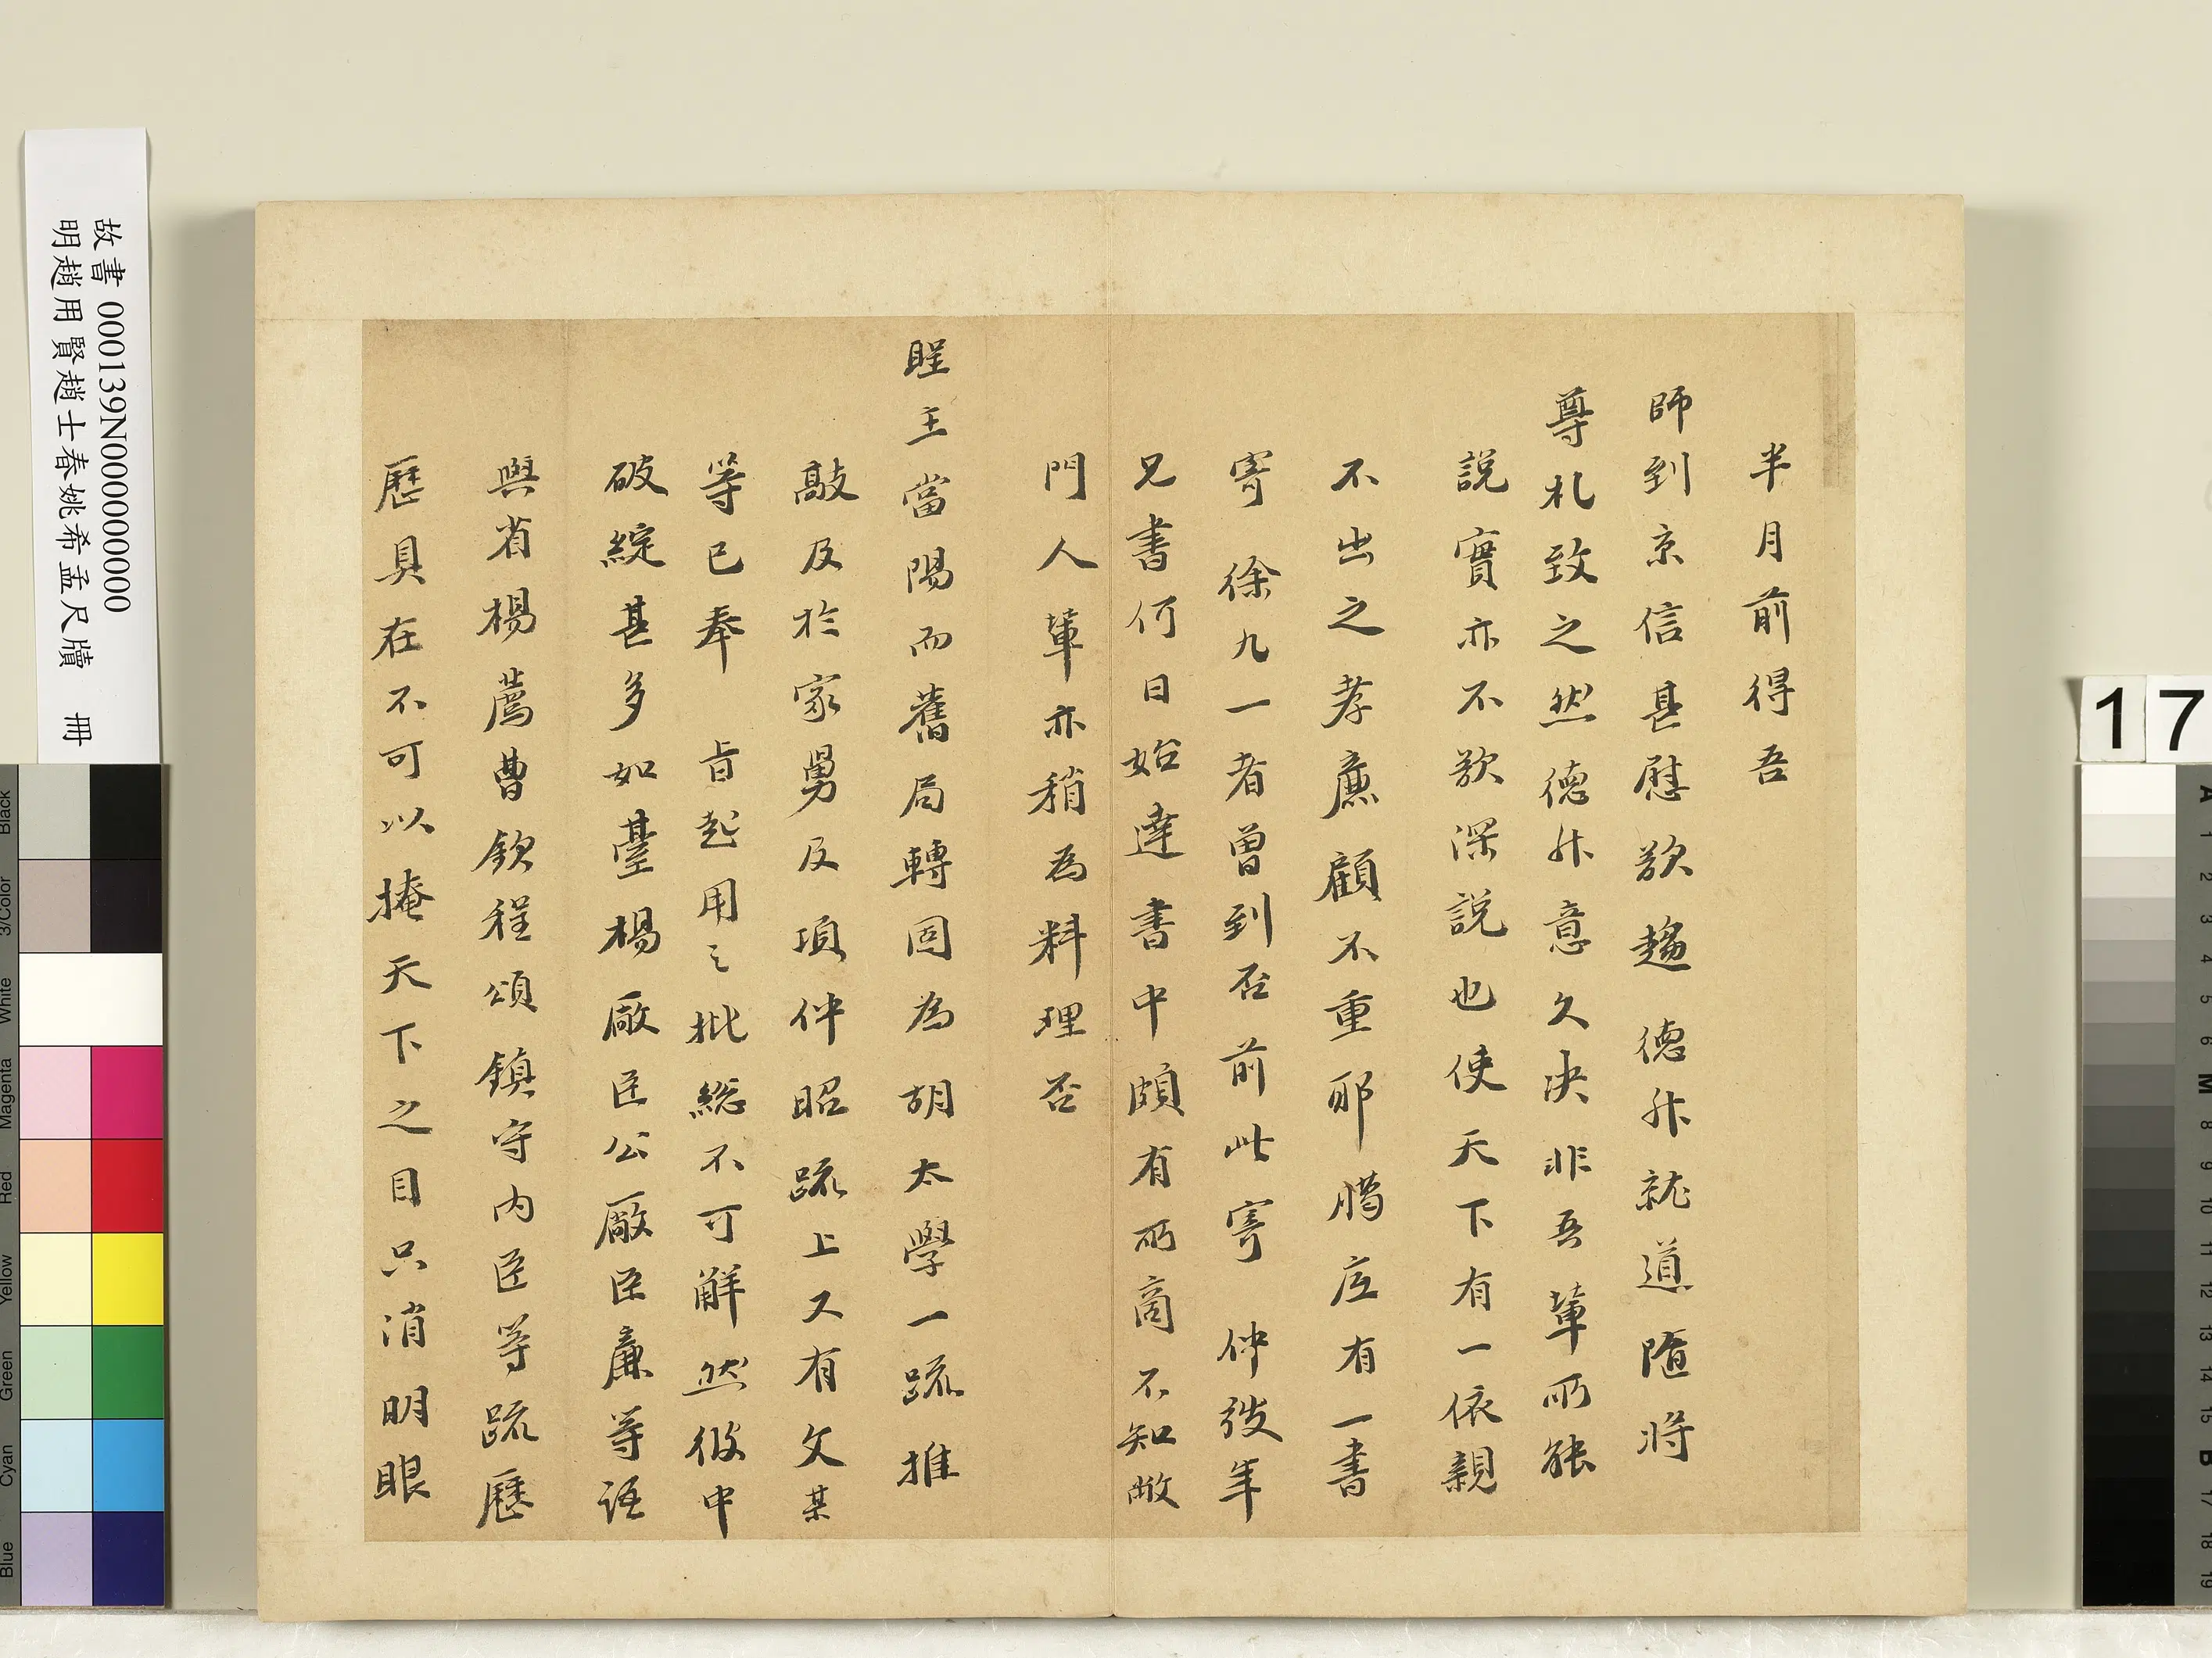 半月前得吾
師到京信甚慰欲趨德升就道隨將
尊札致之然德升意久決非吾輩所能
說實亦不欲深說也使天下有一依親
不出之孝廉顧不重耶臈底有一書
寄徐九一者曾到否前此寄仲弢年
兄書何日始達書中頗有所商不知敝
門人輩亦稍為料理否
聖王當陽而舊局轉固為胡太學一疏推
敲及於家舅及項仲昭疏上又有文某
等已奉旨起用之批總不可解然彼中
破綻甚多如臺楊廠臣公廠臣廉等語
與省楊薦曹欽程頌鎮守內臣等疏歷
歷具在不可以掩天下之目只消明眼
故書 000139N000000000
明趙用賢趙士春姚希孟尺牘 冊
17
Black
3/Color
White
Magenta
Red
Yellow
Green
Cyan
Blue
A
1
2
3
4
5
6
M
8
9
10
11
12
13
14
15
B
17
18
19